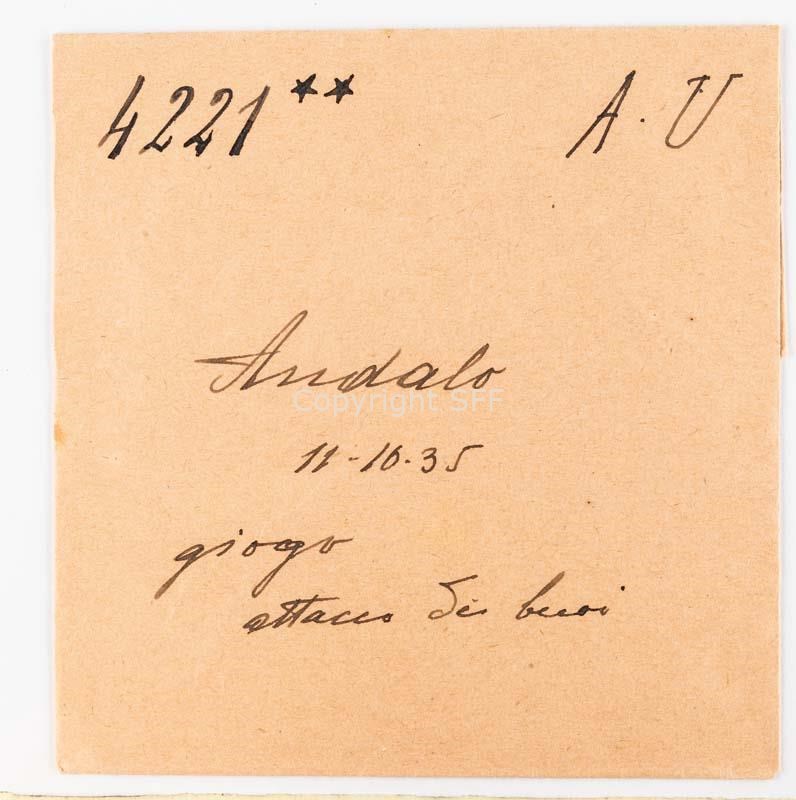 4221** A. U
Andalo
Copyright SFF
11-10.35
giogo
attacco dei buoi